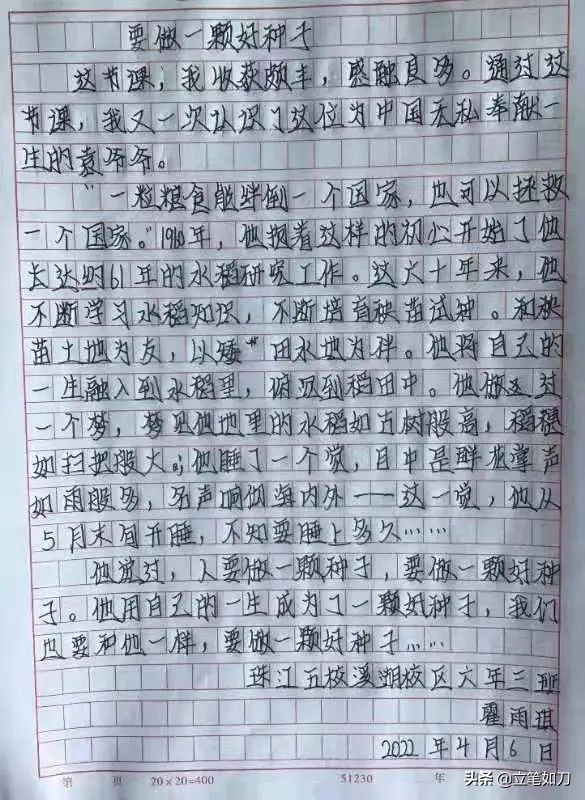 要做一颗好种子
这节课，我收获颇丰，感融良多。通过这
节课，我又一次认识了这位为中国无私奉献一
生的袁爷爷。
"一粒粮食能绊倒一个国家，也可以拯救
一个国家。"1960年，他抱着这样的初心开始了他
长达约61年的水稻研究工作。这六十年来，他
不断学习水稻知识，不断培育秧苗试种。和秧
苗土地为友，以矮 田水地为伴。他将自己的
一生融入到水稻里，俯沉到稻田中。他做 过
一个梦，梦见他地里的水稻如古树般高，稻穗
如扫把般大；他睡了一个觉，目中是鲜花掌声
如雨般多，名声响彻海内外——这一觉，他从
5月末间开睡，不知要睡上多久……
他说过，人要做一颗种子，要做一颗好种
子。他用自己的一生成为了一颗好种子，我们
也要和他一样，要做一颗好种子……
珠江五校溪湖校区六年三班
霍雨琪
2022年4月6日
第 页 20×20=400 51230 年
头条@立笔如刀